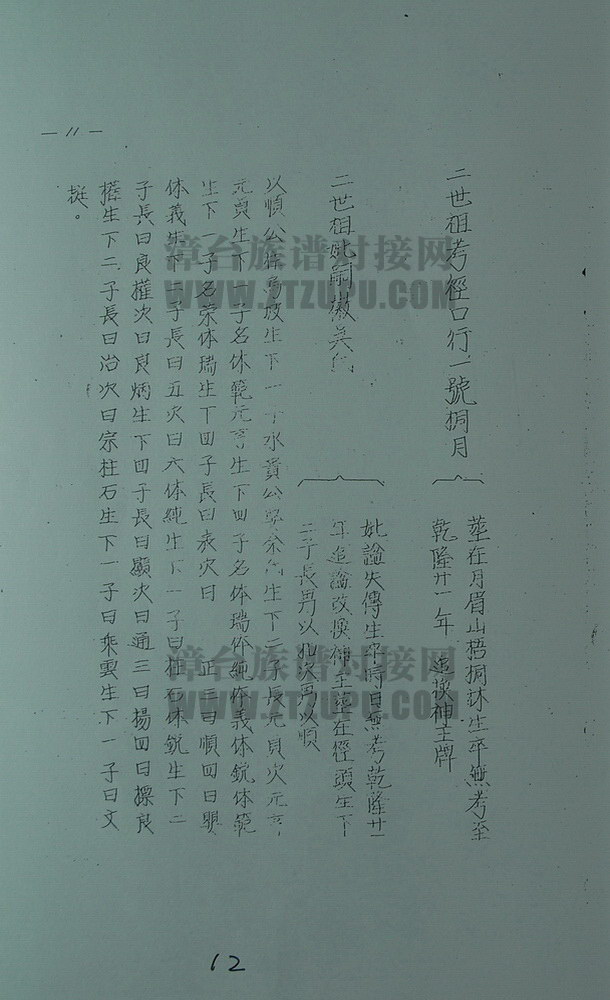 二世祖考徑口行一號桐月
塟在月眉山梧桐林生卒無考至
乾隆廿一年 追換神主牌
二世祖妣嗣徽吳
妣謚失傳生卒時日無考乾隆廿一
年追謚改換神主塟在徑頭生下
二子長男以 次男以順
以順公 生下一子水貴公 生下二子長元貝次元亨
元貝生下一子名体範元亨生下四子名体瑞体純体義体銳体範
生下一子名荣体瑞生下四子長曰 次曰 正三曰順四曰
体義生下二子長曰五次曰六体純生下一子曰柱石体銳生下二
子長曰良權次曰良炳生下四子長曰顯次曰通三曰揚四曰操良
權生下二子長曰治次曰宗柱石生下一子曰乘雲生下一子曰文
。
— 11 —
12
漳台族谱对接网
WWW.ZTZUPU.COM
漳台族谱对接网
WWW.ZTZUPU.COM